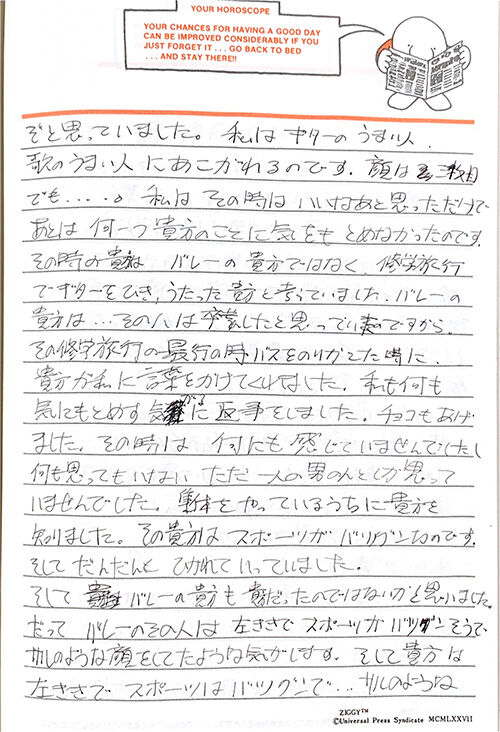 YOUR HOROSCOPE
YOUR CHANCES FOR HAVING A GOOD DAY
CAN BE IMPROVED CONSIDERABLY IF YOU
JUST FORGET IT . . . GO BACK TO BED
. . . AND STAY THERE!!
ぞと思っていました。私はギターのうまい人、
歌のうまい人にあこがれるのです。顔は三枚目
でも.....。私はその時はいいなあと思っただけで
あとは何一つ貴方のことに気をもとめなかったのです。
その時の貴方は バレーの貴方ではなく、修学旅行
でギターをひき、うたった貴方と考っていました。バレーの
貴方は...その人は卒業したと思っていたのですから。
その修学旅行の最行の時、バスをのりかえた時に、
貴方が私に言葉をかけてくれました。私も何も
気にもとめず に返事をしました。チョコもあげ
ました。その時は 何にも感じていませんでしたし
何も思ってもいない ただ一人の男の人としか思って
いませんでした。 をやっているうちに貴方を
知りました。その貴方はスポーツがバツグンなのです。
そして だんだんと ひかれていっていました。
そして バレーの貴方も貴方だったのではないかと思いました。
だって バレーのその人は左ききでスポーツがバツグンそうで
サルのような顔をしてたような気がします。そして貴方は
左ききで スポーツはバツグンで...サルのような
ZIGGY™
©Universal Press Syndicate MCMLXXVII